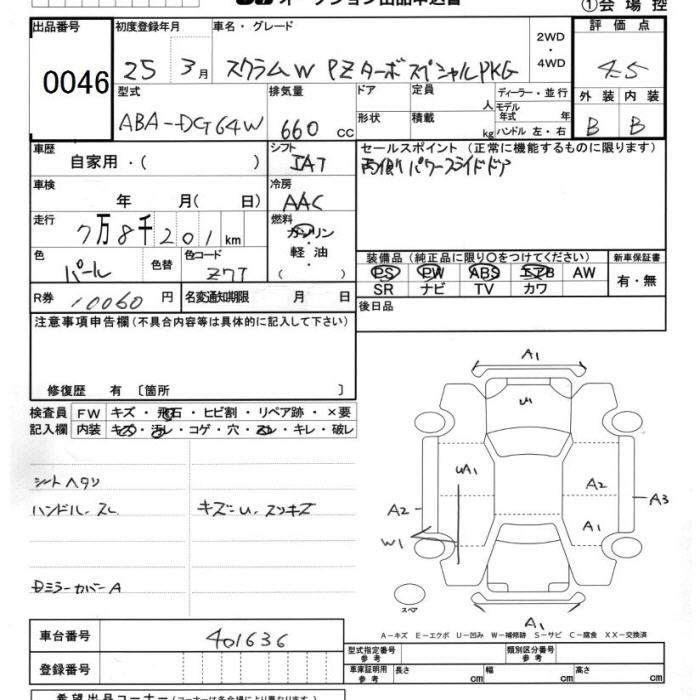 ①会 場 控
出品番号
0046
初度登録年月
25 3月
車名・グレード
スクラムW PZターボスペシャルPKG
2WD
・
4WD
評 価 点
4.5
型式
ABA-DG64W
排気量
660 CC
ドア
形状
定員
人
積載
kg
ディーラー・並 行
モデル
年式 年
ハンドル 左・右
外 装 内 装
B B
車歴
自家用・( )
シフト
IAT
セールスポイント（正常に機能するものに限ります）
両側パワースライドドア
車検
年 月( 日)
冷房
AAC
走行
7万8千201km
燃料
ガソリン
・
軽 油
・
( )
色
パール
色替
色コード
Z7T
装備品（純正品に限り○をつけてください）
PS PW ABS エアB AW
SR ナビ TV カワ
新車保証書
有・無
R券 10060円
名変通知期限 月 日
後日品
注意事項申告欄（不具合内容等は具体的に記入して下さい）
修復歴 有 〔箇所 〕
検査員
記入欄
FW キズ・飛石・ヒビ割・リペア跡・×要
内装 キズ・汚レ・コゲ・穴・スレ・キレ・破レ
シートヘタリ
ハンドル、スレ
キズ=U、スリキズ
Dミラーカバー A
A1
U
UA1
A2
A3
A2
A1
W1
スペア
A1
A－キズ E－エクボ U－凹み W－補修跡 S－サビ C－腐食 XX－交換済
車台番号
401636
登録番号
型式指定番号
参 考
類別区分番号
参 考
車庫証明用
参 考
長さ cm
幅 cm
高さ cm
希望出品コーナー（コーナーは各会場により異なります。）